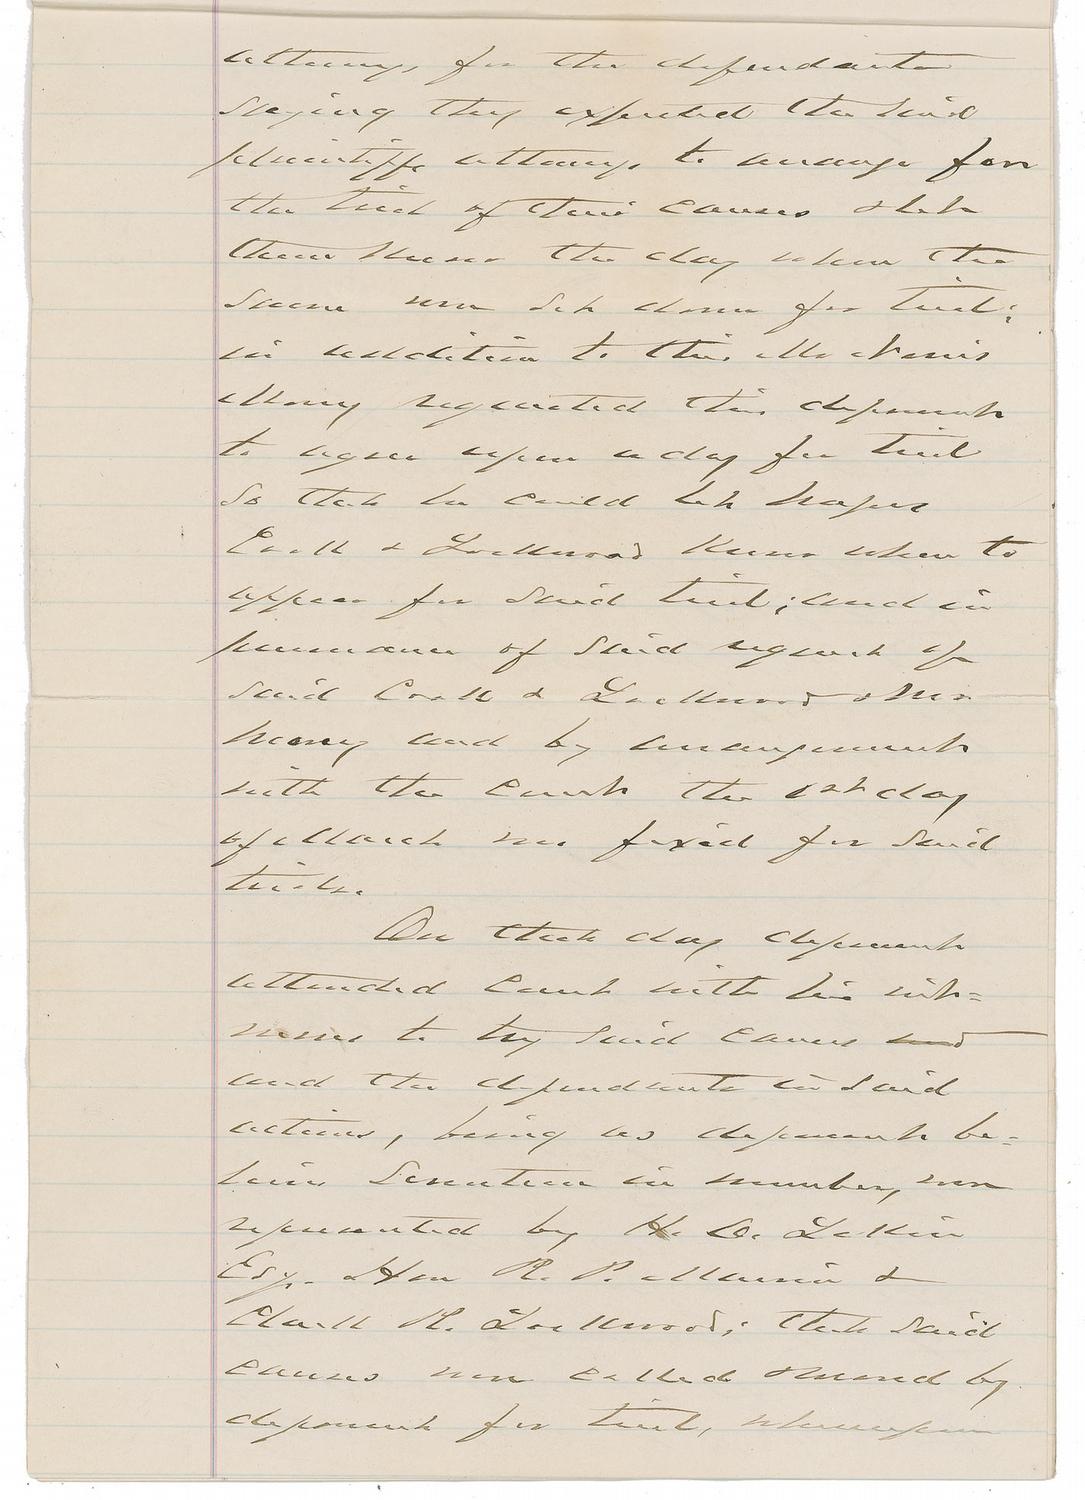 attorneys for the defendants
saying they expected the said
plaintiffs attorneys to arrange for
the trial of these causes & let
them know the day when the
same were set down for trial;
in addition to this Mr
requested this deponent
to agree upon a day for trial
so that he could let Messrs
Cook & Lockwood know when to
appear for said trial; and in
pursuance of said request of
said Cook & Lockwood & Mr
and by arrangement
with the court the 1st day
of March was fixed for said
trials.
On that day deponent
attended court with his wit=
nesses to try said causes and
and the defendants in said
actions, being as deponent be-
lieves seventeen in number, were
represented by H. D.
Esq. Hon R. P. &
Clark H. Lockwood; that said
causes were called & moved by
deponent for trial, whereupon